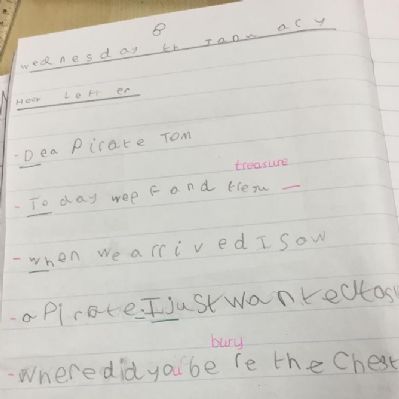 8
Wednesday th Janu acy
Letter
Dea Pirate Tom
treasure
Today wep fand trem
when we arrived I sow
a Pirate. I just wanted to
bury
where did you be re the Chest